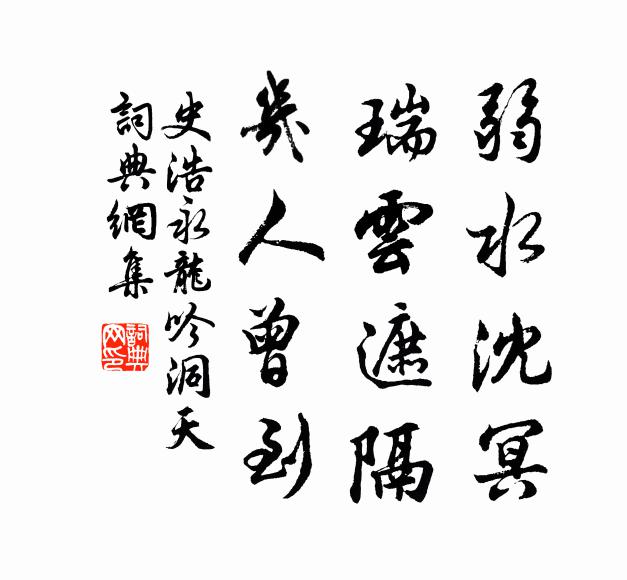 弱水沈冥
瑞雲遮隔
幾人曾到
史浩永龍吟洞天
詞典網集
詞典网印